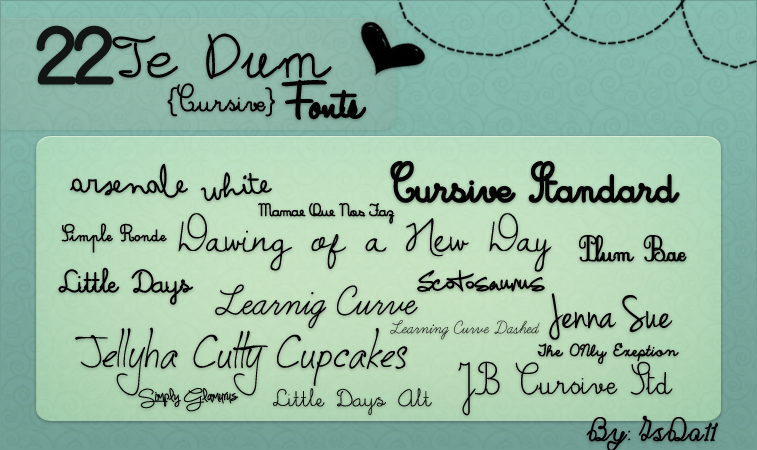 22 Te Dum
{Cursive} Fonts
arsenale white
Cursive Standard
Mamae Que Nos Faz
Simple Ronde
Dawing of a New Day
Plum Bae
Little Days
Learnig Curve
Scotosaurus
Learning Curve Dashed
Jenna Sue
Jellyha Cutty Cupcakes
The ONly Exeption
JB Cursive Std
Simply Glamorus
Little Days Alt
By: